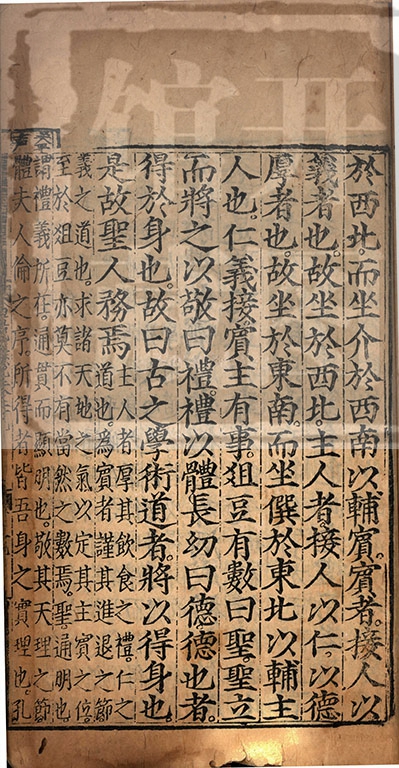 於西北。而坐介於西南以輔賓。賓者。接人以
義者也。故坐於西北。主人者。接人以仁。以德
厚者也。故坐於東南。而坐僎於東北以輔主
人也。仁義接。賓主有事。狙豆有數曰聖。聖立
而將之以敬曰禮。禮以體長幼曰德。德也者。
得於身也。故曰古之學術道者。將以得身也。
是故聖人務焉
主人者厚其飲食之禮。仁之
道也。為賓者謹其進退之節
義之道也。求諸天地之氣以定其主賓之位。
至於狙豆亦莫不有當然之數焉。聖通明也。
謂禮義所在。通貫而顯明也。敬其天理之節。
體夫人倫之序。所得者皆吾身之實理也。孔